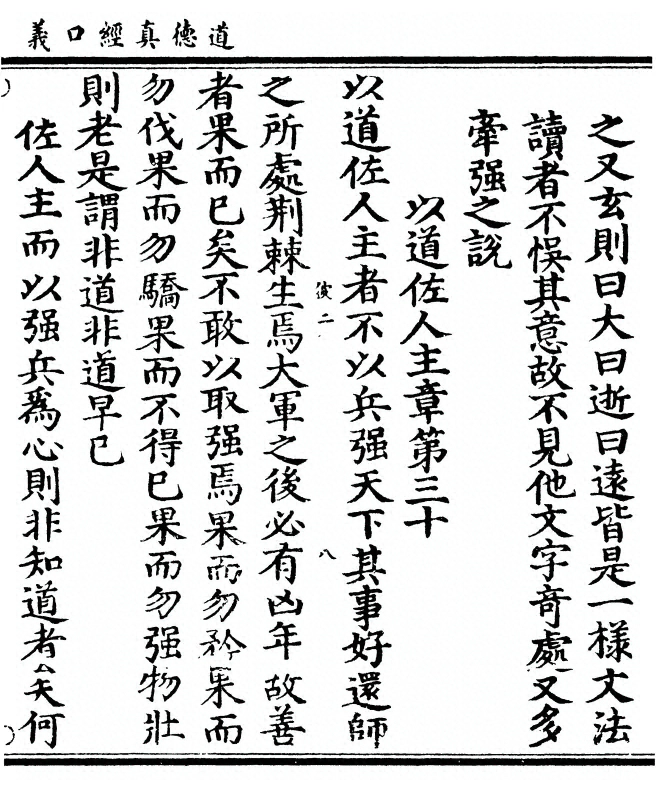 道德真經口義
之又玄則曰大曰逝曰遠皆是一樣文法
讀者不悞其意故不見他文字奇處又多
牽强之說
以道佐人主章第三十
以道佐人主者不以兵强天下其事好還師
之所處荆棘生焉大軍之後必有凶年故善
者果而已矣不敢以取强焉果而勿矜果而
勿伐果而勿驕果而不得已果而勿强物壯
則老是謂非道非道早已
佐人主而以强兵爲心則非知道者矣何
二
八